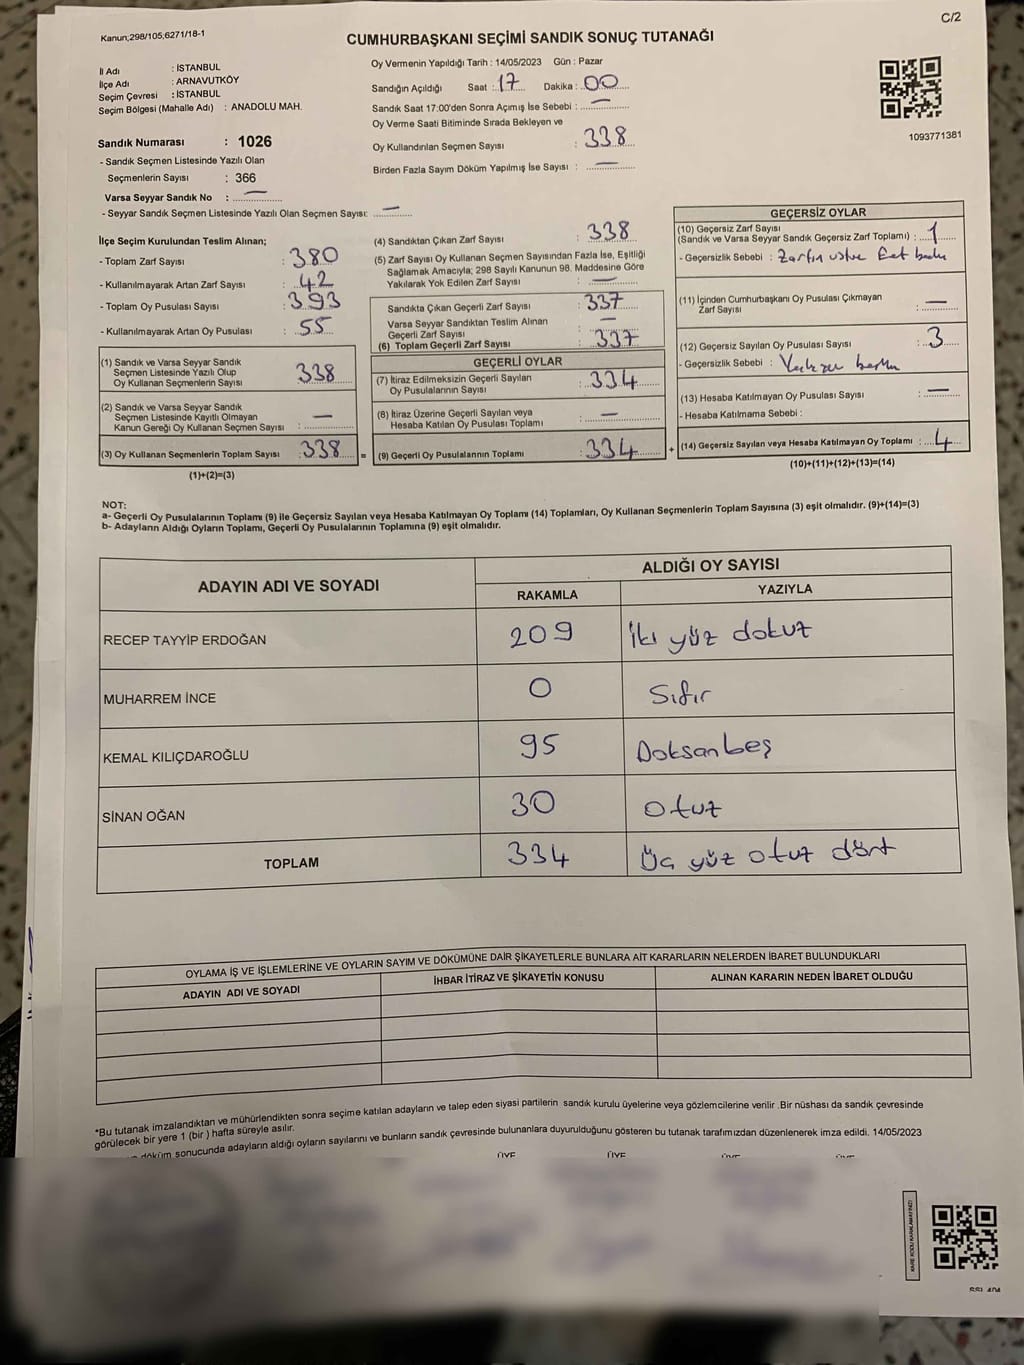 C/2
Kanun;298/105;6271/18-1
CUMHURBAŞKANI SEÇİMİ SANDIK SONUÇ TUTANAĞI
İl Adı : İSTANBUL
İlçe Adı : ARNAVUTKÖY
Seçim Çevresi : İSTANBUL
Seçim Bölgesi (Mahalle Adı) : ANADOLU MAH.
Sandık Numarası : 1026
- Sandık Seçmen Listesinde Yazılı Olan
Seçmenlerin Sayısı : 366
Varsa Seyyar Sandık No : —
- Seyyar Sandık Seçmen Listesinde Yazılı Olan Seçmen Sayısı: —
Oy Vermenin Yapıldığı Tarih : 14/05/2023 Gün : Pazar
Sandığın Açıldığı Saat : 17 Dakika : 00
Sandık Saat 17:00'den Sonra Açılmış İse Sebebi : —
Oy Verme Saati Bitiminde Sırada Bekleyen ve
Oy Kullandırılan Seçmen Sayısı : 338
Birden Fazla Sayım Döküm Yapılmış İse Sayısı : —
1093771381
İlçe Seçim Kurulundan Teslim Alınan;
- Toplam Zarf Sayısı : 380
- Kullanılmayarak Artan Zarf Sayısı : 42
- Toplam Oy Pusulası Sayısı : 393
- Kullanılmayarak Artan Oy Pusulası : 55
(1) Sandık ve Varsa Seyyar Sandık
Seçmen Listesinde Yazılı Olup
Oy Kullanan Seçmenlerin Sayısı : 338
(2) Sandık ve Varsa Seyyar Sandık
Seçmen Listesinde Kayıtlı Olmayan
Kanun Gereği Oy Kullanan Seçmen Sayısı : —
(3) Oy Kullanan Seçmenlerin Toplam Sayısı : 338 =
(1)+(2)=(3)
(4) Sandıktan Çıkan Zarf Sayısı : 338
(5) Zarf Sayısı Oy Kullanan Seçmen Sayısından Fazla İse, Eşitliği
Sağlamak Amacıyla; 298 Sayılı Kanunun 98. Maddesine Göre
Yakılarak Yok Edilen Zarf Sayısı : —
Sandıkta Çıkan Geçerli Zarf Sayısı : 337
Varsa Seyyar Sandıktan Teslim Alınan
Geçerli Zarf Sayısı : —
(6) Toplam Geçerli Zarf Sayısı : 337
GEÇERLİ OYLAR
(7) İtiraz Edilmeksizin Geçerli Sayılan
Oy Pusulalarının Sayısı : 334
(8) İtiraz Üzerine Geçerli Sayılan veya
Hesaba Katılan Oy Pusulası Toplamı : —
(9) Geçerli Oy Pusulalarının Toplamı : 334 +
GEÇERSİZ OYLAR
(10) Geçersiz Zarf Sayısı
(Sandık ve Varsa Seyyar Sandık Geçersiz Zarf Toplamı) : 1
- Geçersizlik Sebebi : Zarfın
(11) İçinden Cumhurbaşkanı Oy Pusulası Çıkmayan
Zarf Sayısı : —
(12) Geçersiz Sayılan Oy Pusulası Sayısı : 3
- Geçersizlik Sebebi :
(13) Hesaba Katılmayan Oy Pusulası Sayısı : —
- Hesaba Katılmama Sebebi :
(14) Geçersiz Sayılan veya Hesaba Katılmayan Oy Toplamı : 4
(10)+(11)+(12)+(13)=(14)
NOT:
a- Geçerli Oy Pusulalarının Toplamı (9) ile Geçersiz Sayılan veya Hesaba Katılmayan Oy Toplamı (14) Toplamları, Oy Kullanan Seçmenlerin Toplam Sayısına (3) eşit olmalıdır. (9)+(14)=(3)
b- Adayların Aldığı Oyların Toplamı, Geçerli Oy Pusulalarının Toplamına (9) eşit olmalıdır.
ADAYIN ADI VE SOYADI ALDIĞI OY SAYISI
RAKAMLA YAZIYLA
RECEP TAYYİP ERDOĞAN 209 İki yüz dokuz
MUHARREM İNCE 0 Sıfır
KEMAL KILIÇDAROĞLU 95 Doksan beş
SİNAN OĞAN 30 otuz
TOPLAM 334 Üç yüz otuz dört
OYLAMA İŞ VE İŞLEMLERİNE VE OYLARIN SAYIM VE DÖKÜMÜNE DAİR ŞİKAYETLERLE BUNLARA AİT KARARLARIN NELERDEN İBARET BULUNDUKLARI
ADAYIN ADI VE SOYADI İHBAR İTİRAZ VE ŞİKAYETİN KONUSU ALINAN KARARIN NEDEN İBARET OLDUĞU
*Bu tutanak imzalandıktan ve mühürlendikten sonra seçime katılan adayların ve talep eden siyasi partilerin sandık kurulu üyelerine veya gözlemcilerine verilir .Bir nüshası da sandık çevresinde
görülecek bir yere 1 (bir ) hafta süreyle asılır.
döküm sonucunda adayların aldığı oyların sayılarını ve bunların sandık çevresinde bulunanlara duyurulduğunu gösteren bu tutanak tarafımızdan düzenlenerek imza edildi. 14/05/2023
ÜYE ÜYE ÜYE